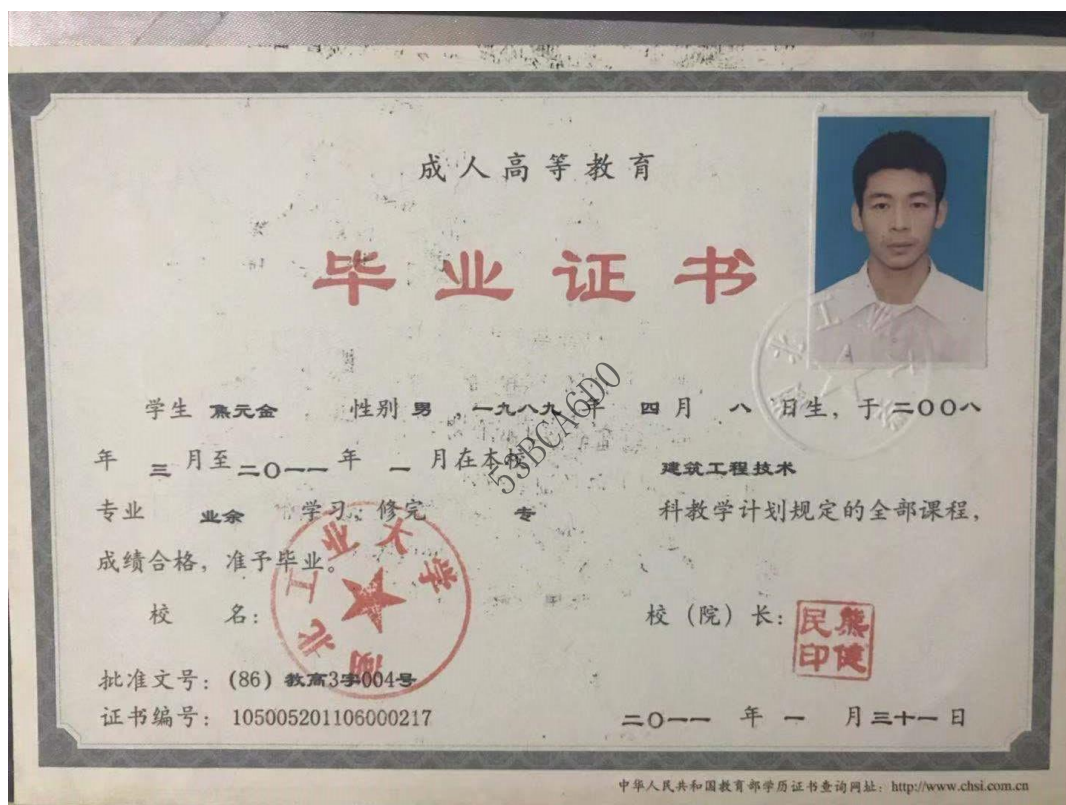 成人高等教育
毕业证书
学生 焦元金 性别 男 ，一九八九 年 四 月 八 日生，于 二〇〇八
年 三 月至 二〇一一 年 一 月在本校 建筑工程技术
专业 业余 学习，修完 专 科教学计划规定的全部课程，
成绩合格，准予毕业。
校 名：
湖北工业大学
校（院）长：
熊健民印
批准文号：(86) 教高3字004号
证书编号：105005201106000217
二〇一一 年 一 月三十一日
中华人民共和国教育部学历证书查询网址：http://www.chsi.com.cn
53BCA6D0